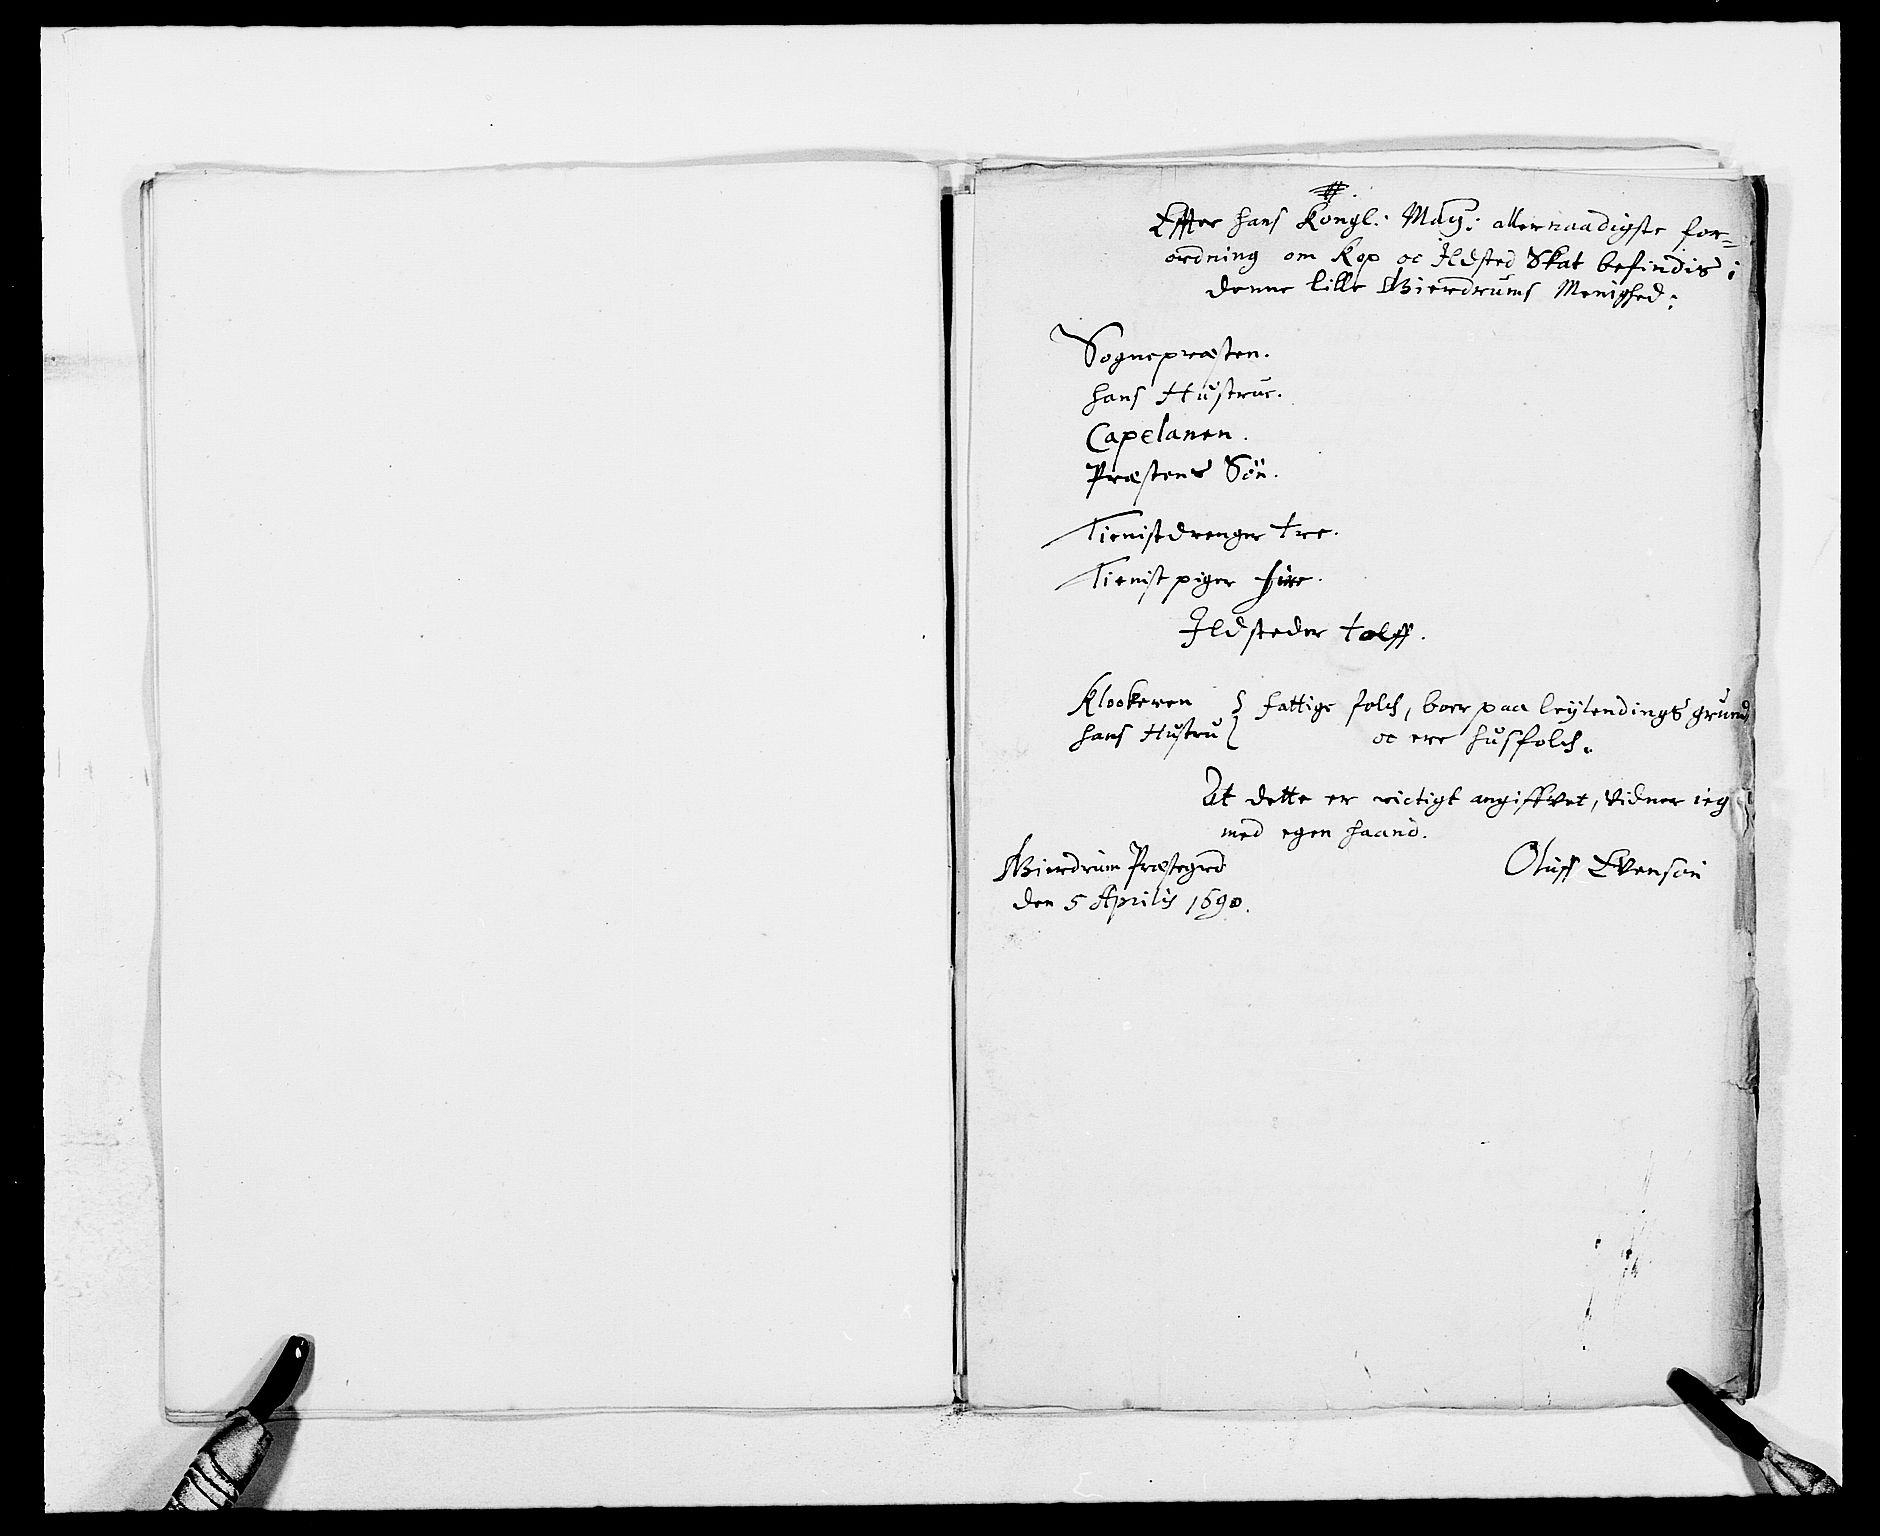 Effter hans Kongl: May: allernaadigste for=
ordning om Kop oc Ildsted Skat befindis i
denne lille Gierdrums Menighed:
Sognepræsten.
hans Hustrue.
Capelanen.
Præstens Sön.
Tienistdrenger tre.
Tienist piger fire.
Ildsteder tolff.
Klockeren } fattige folch, boer paa leylendings grund,
hans Hustru } oc ere husfolch.
At dette er rictigt angiffvet, vidner ieg
med egen haand.
Gierdrum Præstegrd Oluff Evensön
den 5 Aprilis 1690.